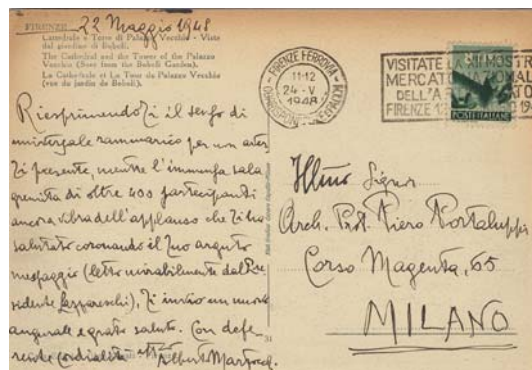 FIRENZE 22 Maggio 1948
Cattedrale e Torre di Palazzo Vecchio - Viste
dal giardino di Boboli.
The Cathedral and the Tower of the Palazzo
Vecchio (Seen from the Boboli Garden).
La Cathédrale et La Tour du Palazzo Vecchio
(vue du jardin de Boboli).
Riesprimendoti il senso di
universale rammarico per non averti
presente, mentre l'immensa sala
gremita di oltre 400 partecipanti
ancora vibra dell'applauso che ti ha
salutato coronando il tuo arguto
messaggio (letto mirabilmente dal Pre
sidente Lazzareschi), ti invio un nuovo
augurale e grato saluto. Con defe-
rente cordialità
Alberto
FIRENZE FERROVIA
11-12
24 - V
1948
VISITATE LA MOSTRA
MERCATO NAZIONALE
DELL'ARTIGIANATO
FIRENZE
POSTE ITALIANE
Illmo Signor
Arch. Prof. Piero Portaluppi
Corso Magenta, 65
MILANO